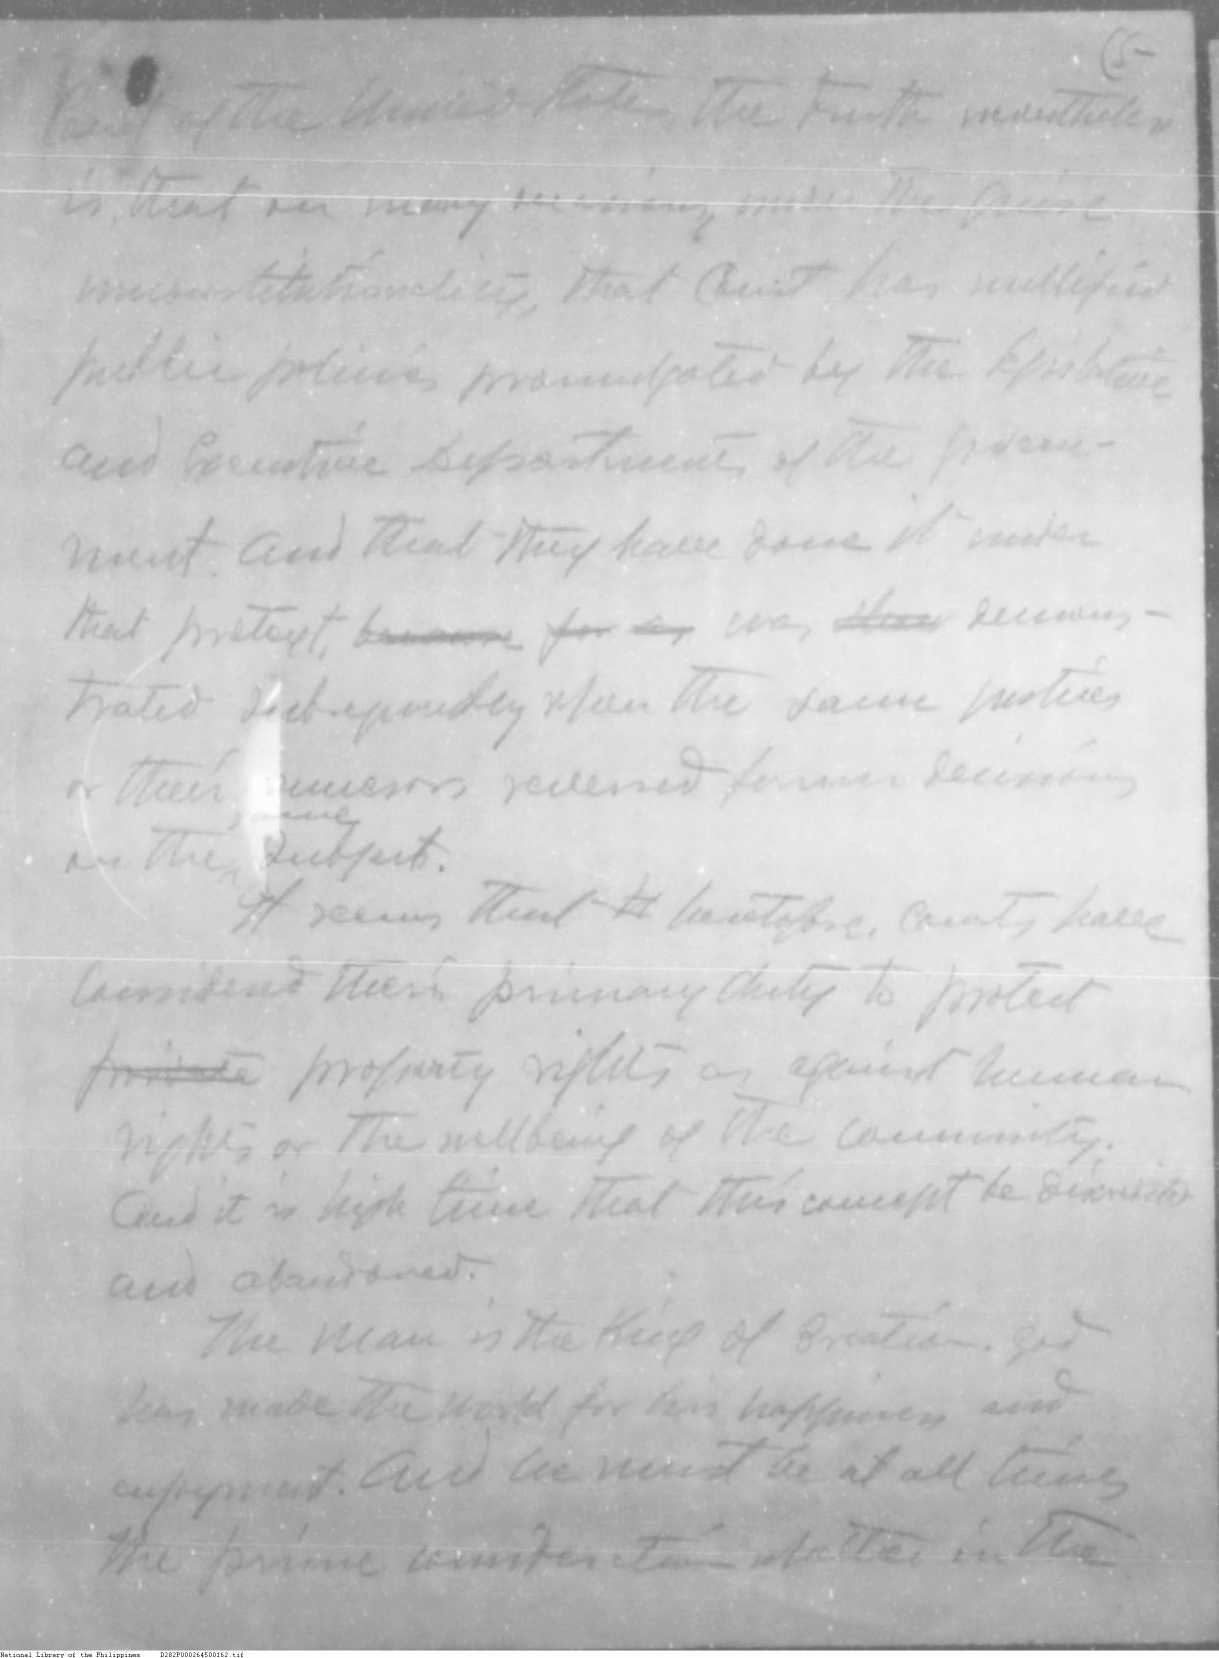 (5-
Court of the United States, the truth nevertheless
is, that on many occasions, under the guise
unconstitutionality, that Court has nullified
public policies promulgated by the Legislative
and Executive Departments of the govern-
ment. And that they have done it under
that pretext, because for as was then demons-
trated subsequently when the same justices
or their successors reversed former decisions
on the same subject.
It seems that heretofore, courts have
considered their primary duty to protect
private property rights as against human
rights or the wellbeing of the community.
And it is high time that this concept be discarded
and abandoned.
The Man is the King of Creation. God
has made the world for his happiness and
enjoyment. And he must be at all times
the prime consideration whether in the
National Library of the Philippines D282P000264500162.tif